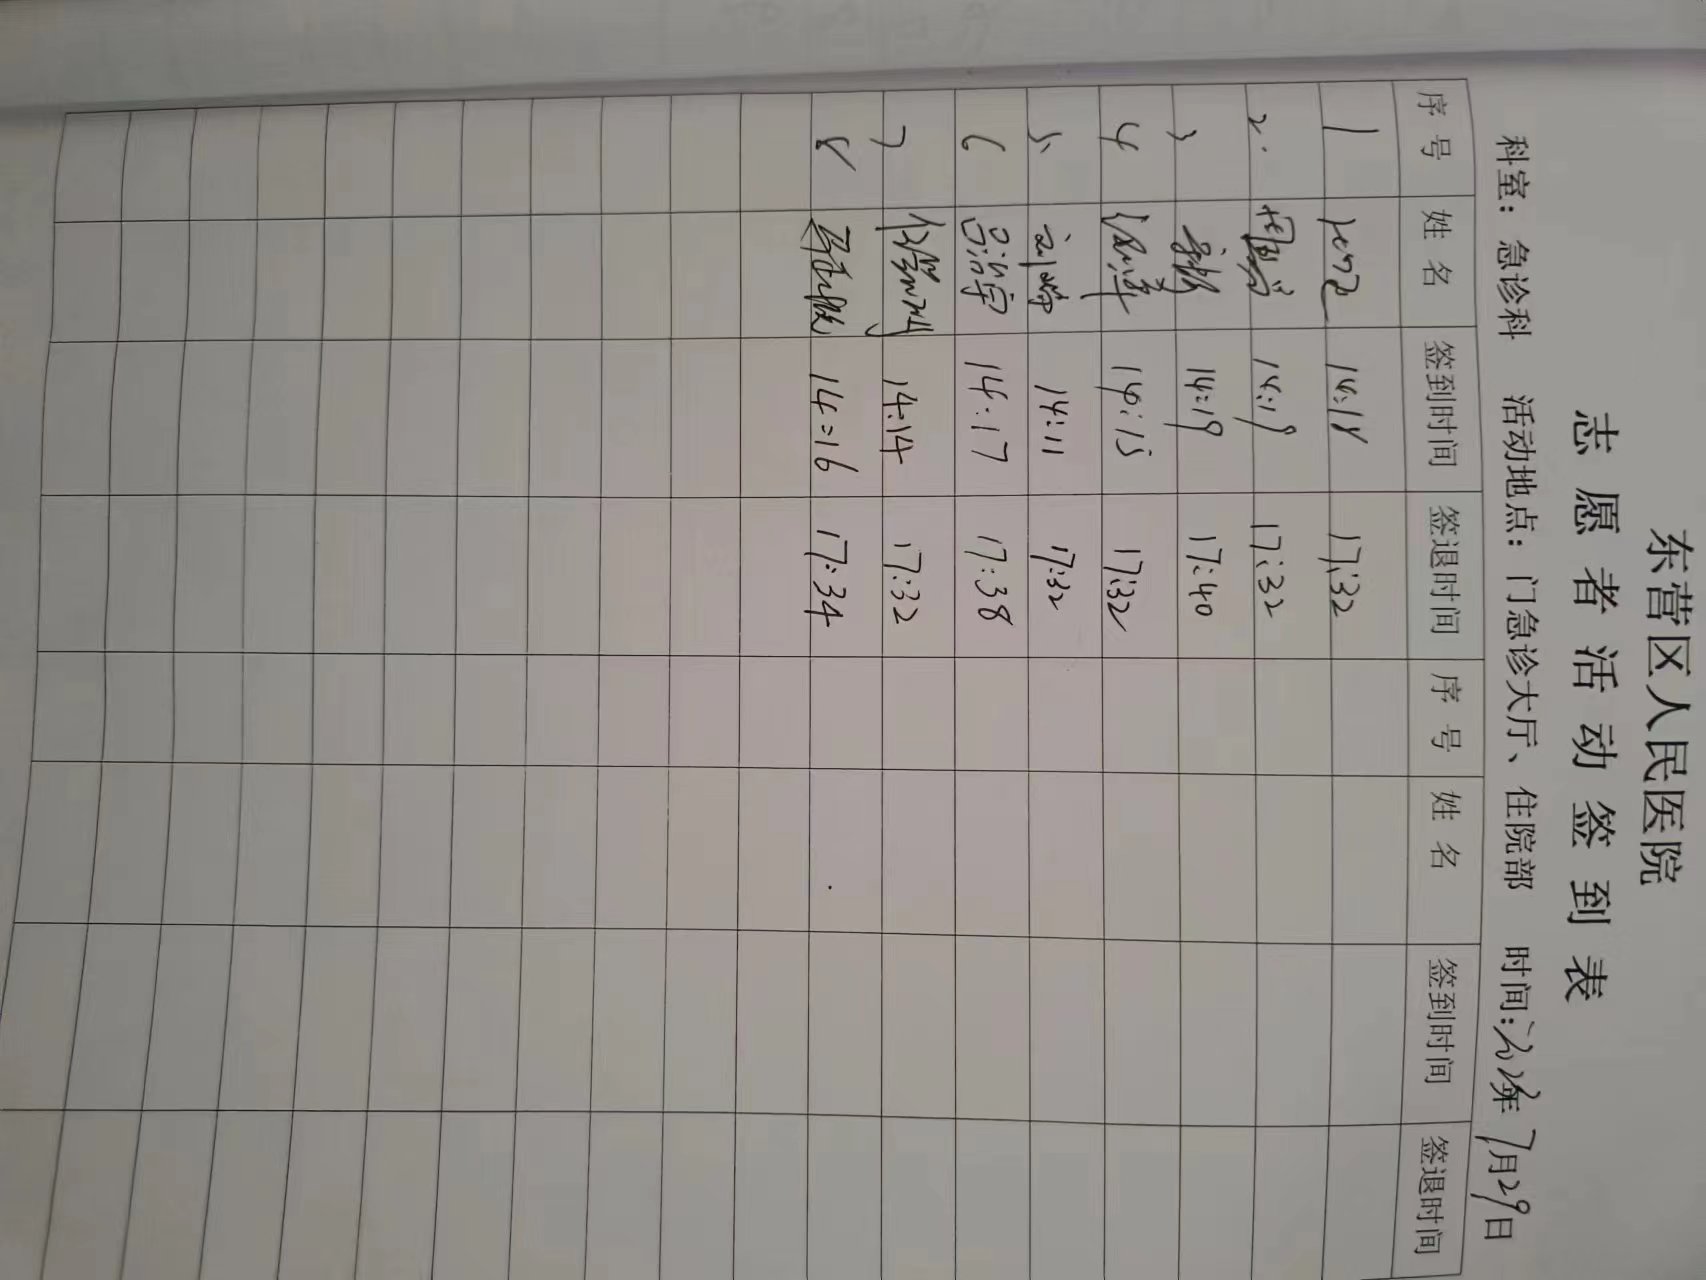 东营区人民医院
志愿者活动签到表
科室：急诊科 活动地点：门急诊大厅、住院部 时间： 年7月29日
序号 姓名 签到时间 签退时间 序号 姓名 签到时间 签退时间
1 14:18 17:32
2. 14:19 17:32
3 14:19 17:40
4 14:15 17:32
5 刘峰 14:11 17:32
6 吕治宇 14:17 17:38
7 14:14 17:32
8 14:16 17:34